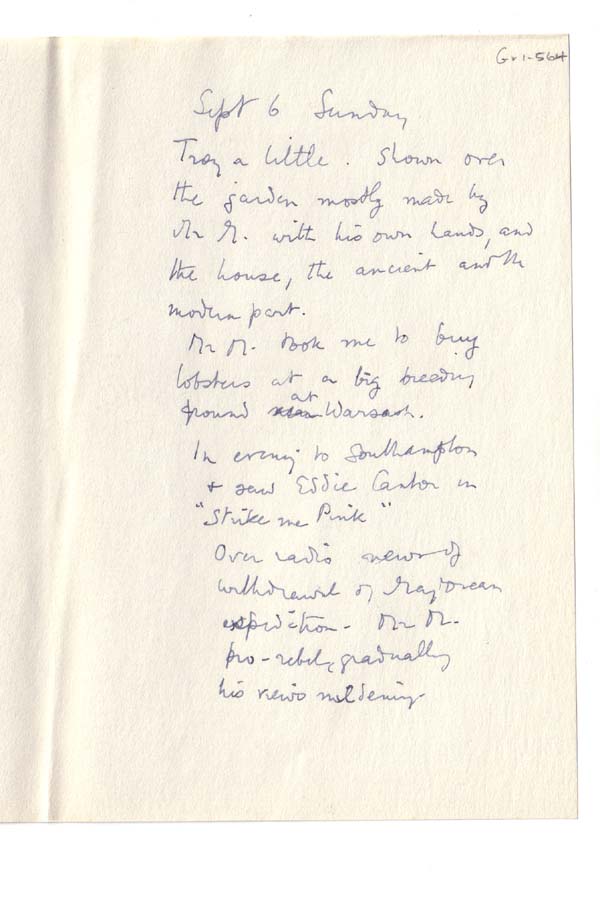 Gr1-564
Sept 6 Sunday
Troy a little. Shown over
the garden mostly made by
Mr M. with his own hands, and
the house, the ancient and the
modern part.
Mr M. took me to buy
lobsters at a big breeding
ground at Warsash.
In evening to Southampton
& saw Eddie Cantor in
"Strike me Pink"
Over radio news of
withdrawal of Majorcan
expedition - Mr M.
pro-rebel, gradually
his views